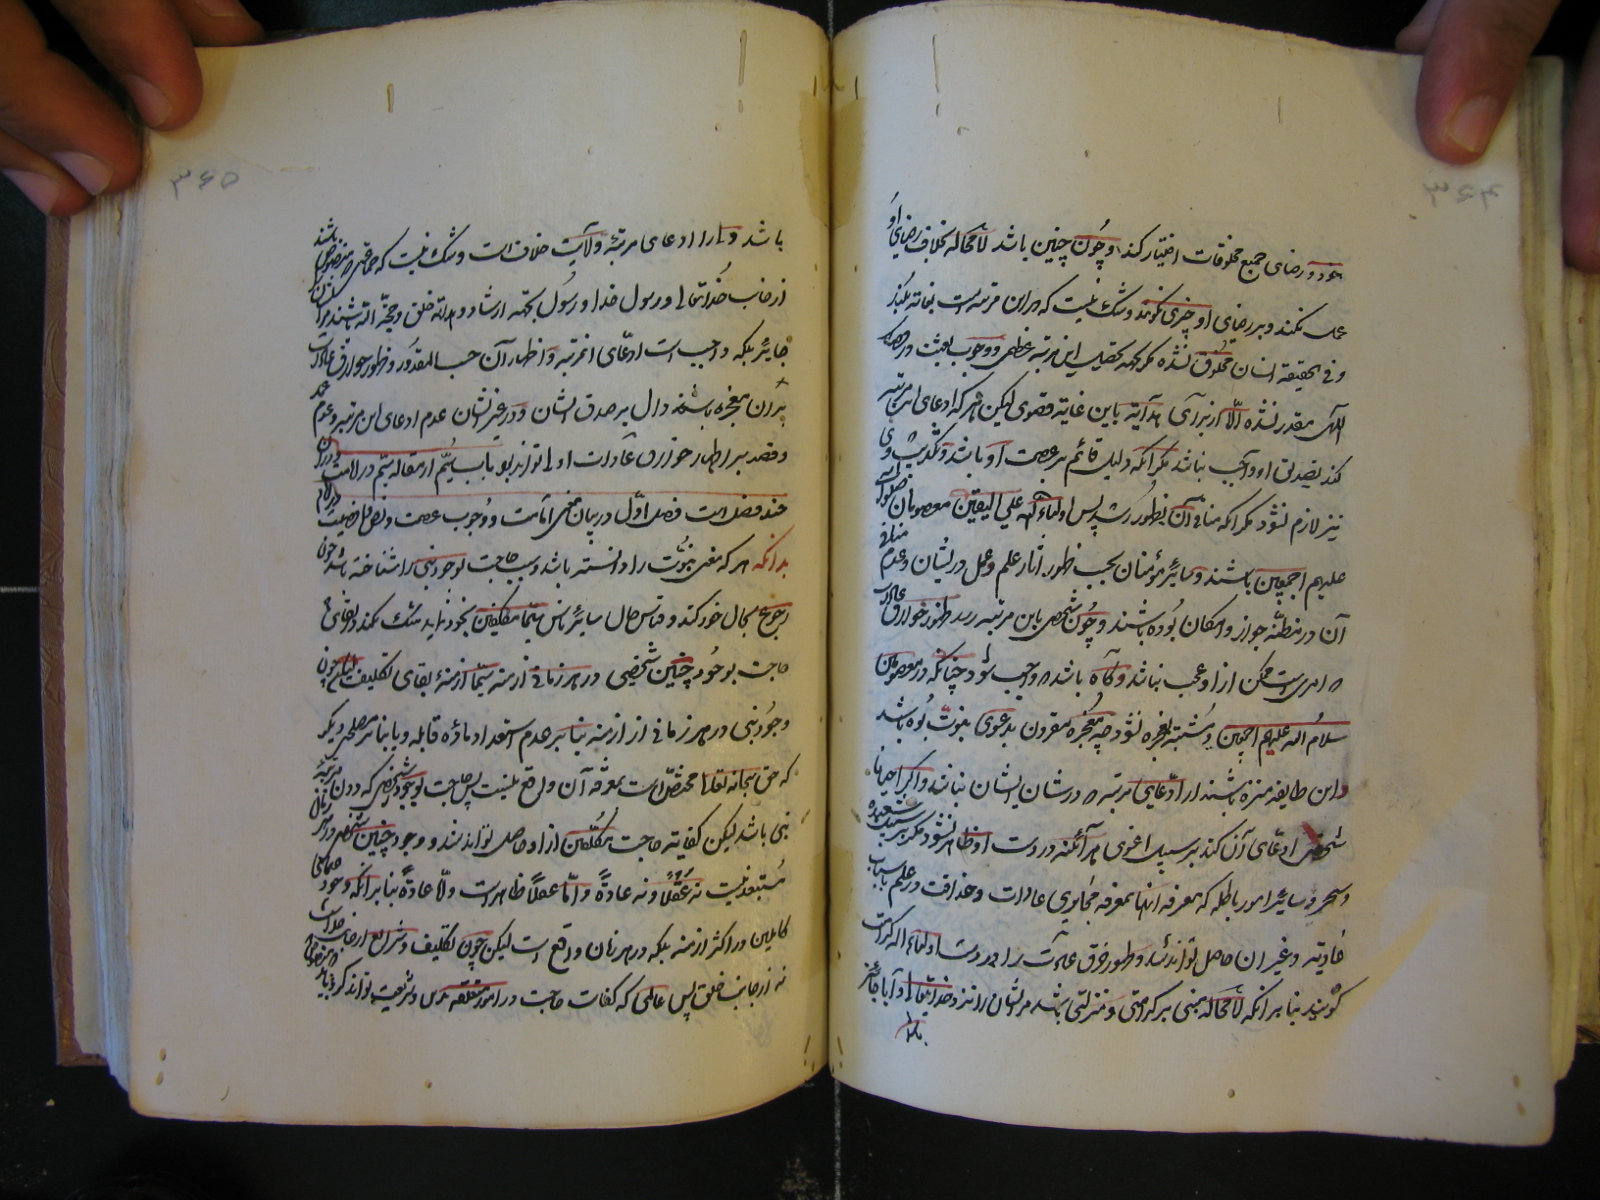 خود و رضای جمیع مخلوقات اختیار کند و چون چنین باشد لا محاله بخلاف رضای او
عمل نکند و بر رضای او چیزی نگزیند و شک نیست که این مرتبه نهایت
و فی الحقیقه انسان مخلوق نشده مگر بجهة تحصیل این مرتبه عظمی و وجوب بعثت و
مقدر نشده الا از برای هدایت باین غایة قصوی لیکن هر که ادعای این مرتبه
کند تصدیق او واجب نباشد مگر آنکه دلیل قائم بر عصمت او باشد و تکذیب وی
نیز لازم نشود مگر آنکه منافی آن بظهور رسد پس اولیاء الله علی الیقین معصومان صلوات الله
علیهم اجمعین باشند و سایر مؤمنان بحسب ظهور آثار علم و عمل در ایشان و عدم منافی
آن در مظنّه جواز و امکان بوده باشند و چون شخصی باین مرتبه رسد ظهور خوارق عادات
که امریست ممکن از او عجب نباشد و گاه باشد که واجب شود چنانکه در معصومین
سلام الله علیهم اجمعین و مشتبه بمعجزه نشود چه معجزه مقرون بدعوی نبوّت بوده باشد
و این طایفه منزه باشند از ادّعای مرتبه که در شان ایشان نباشد و اگر احیانا
شخصی ادعای آن کند بر سبیل اغوی هر آینه در دست او ظاهر نشود مگر بر سبیل شعبده
و سحر و سایر امور باطله که معرفه آنها بمعرفه مجاری عادات و حذاقت در علم باسباب
عادیّه و غیر آن حاصل تواند شد و ظهور خرق عادت را در دست اولیاء الله کرامت
گویند بنابر آنکه لا محاله مبنی بر کرامتی و منزلتی باشد مر ایشان را نزد خدایتعالی و آیا جائز
باشد
باشد و لیرا ادعای مرتبهٔ ولایت خلاف است و شک نیست که جماعتی که منصوص باشند
از جانب خدایتعالی و رسول خدا و رسول بجهة ارشاد و هدایة خلق و حجّة الله باشند
جایز بلکه واجب است ادعای این مرتبه و اظهار آن حسب المقدور و ظهور خوارق عادات
بر آن معجزه باشند دال بر صدق ایشان و در غیر ایشان عدم ادعای این مرتبه و عدم عمد
و قصد بر اظهار خوارق عادات اولی تواند بود باب سیّم از مقاله سیّم در امامت و در آن
چند فصل است فصل اوّل در بیان معنی امامت و وجوب عصمت و نص و افضلیت
بدانکه هر که معنی نبوّت را دانسته باشد و سبب حاجت بوجود نبی را شناخته باشد چون
رجوع بحال خود کند و قیاس حال سایر ناس سیّما مکلفین بخود نماید شک نکند در بقای
حاجت بوجود چنین شخصی در هر زمانی از ازمنه سیّما ازمنهٔ بقای تکلیف لیکن چون
وجود نبی در هر زمانی از ازمنه بنابر عدم استعداد مادّه قابله و یا بنابر مصلحتی دیگر
که حق سبحانه تعالی مختصّ است بمعرفه آن واقع نیست پس حاجت بوجود شخصی که دون مرتبهٔ
نبی باشد لیکن کفایة حاجت مکلّفین از او حاصل تواند شد و وجود چنین شخص در هر زمان
مستبعد نیست نه عقلاً و نه عادةً و امّا عقلاً ظاهر است و امّا عادةً بنابر آنکه وجود جماعتی
کاملین در اکثر ازمنه بلکه در هر زمان واقع است لیکن چون تکلیف و شرایع از جانب خداست
نه از جانب خلق پس عالمی که کفایت حاجت در امور متعلقه بدین و شریعت تواند کرد باید